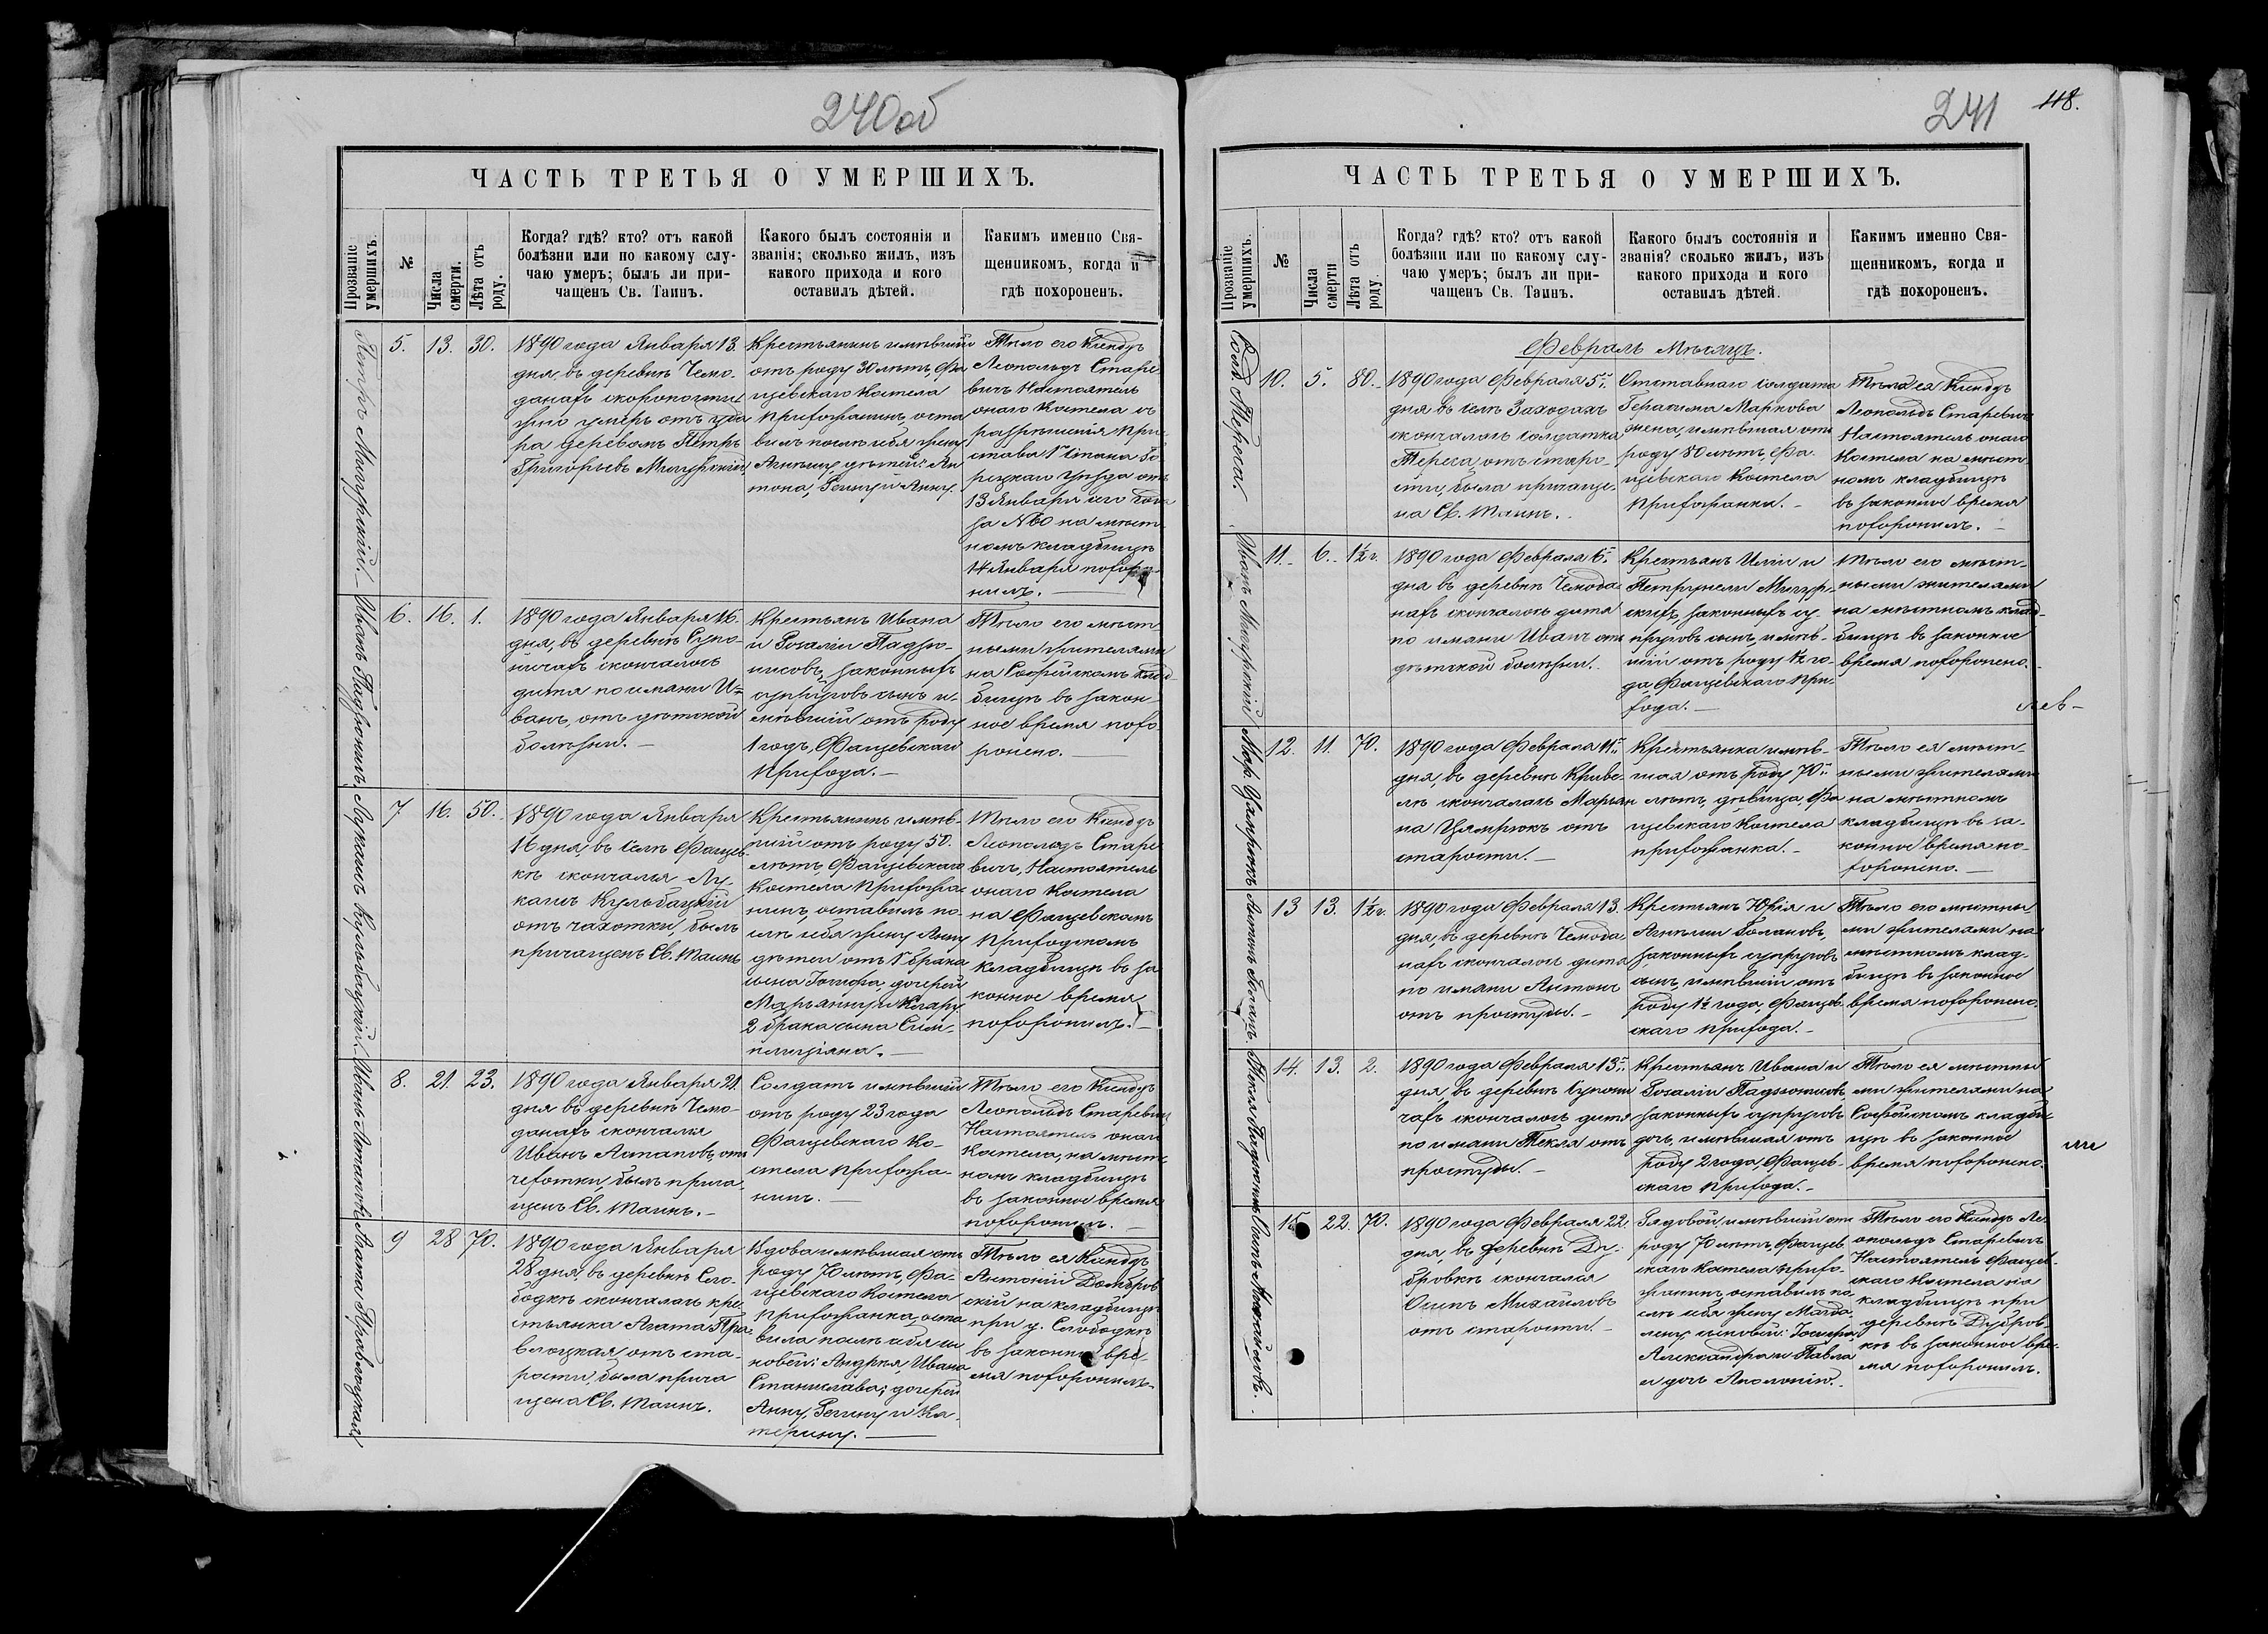 240об
ЧАСТЬ ТРЕТЬЯ О УМЕРШИХЪ.
Прозваніе умершихъ.
№
Числа смерти.
Лѣта отъ роду.
Когда? гдѣ? кто? отъ какой
болѣзни или по какому слу-
чаю умеръ; былъ ли при-
чащенъ Св. Таинъ.
Какого былъ состоянія и
званія; сколько жилъ, изъ
какого прихода и кого
оставилъ дѣтей.
Какимъ именно Свя-
щенникомъ, когда и
гдѣ похороненъ.
5. 13. 30.
1890 года Января 13.
дня, въ деревнѣ Чемо-
данахъ скоропостиж
но умеръ отъ уда
ра деревомъ Петръ
Григорьевъ
Крестьянинъ имѣвшій
отъ роду 30 лѣтъ, Фа
щевскаго Костела
прихожанинъ, оста
вилъ послѣ себя жену
Агнешку, дѣтей: Ан
тона, Регину и Анну.
Тѣло его Ксендзъ
Леопольдъ Старе
вичъ Настоятель
онаго Костела съ
разрѣшенія При-
става 1 Стана Го-
рецкаго Уѣзда отъ
13 Января сего года
за № 60 на мѣст
номъ кладбищѣ
14 Января похоро-
нилъ.
Иванъ
6. 16. 1.
1890 года Января 16.
дня, въ деревнѣ Супо-
ничахъ скончалось
дитя по имени И-
ванъ, отъ дѣтской
болѣзни.
Крестьянъ Ивана
и Розаліи Падзю-
нисовъ, законныхъ
супруговъ сынъ и-
мѣвшій отъ роду
1 годъ, Фащевскаго
прихода.
Тѣло его мѣст-
ными жителями
на Софійскомъ клад-
бищѣ въ закон-
ное время похо
ронено.
Лукашъ Кульбацкій
7 16. 50.
1890 года Января
16 дня, въ селѣ Фащев-
кѣ скончался Лу-
кашъ Кульбацкій
отъ чахотки, былъ
причащенъ Св. Таинъ
Крестьянинъ имѣв-
шій отъ роду 50.
лѣтъ, Фащевскаго
Костела прихожа-
нинъ, оставилъ по-
слѣ себя жену Анну
дѣтей отъ 1 брака
сына Іосифа, дочерей
Марьянну и Клару
2 брака сына Сим-
плиціяна.
Тѣло его Ксендзъ
Леопольдъ Старе
вичъ, Настоятель
онаго Костела
на Фащевскомъ
приходскомъ
кладбищѣ въ за
конное время
похоронилъ.
Иванъ Астаповъ
8. 21. 23.
1890 года Января 21.
дня въ деревнѣ Чемо-
данахъ скончался
Иванъ Астаповъ, отъ
чехотки, былъ прича
щенъ Св. Таинъ.
Солдатъ имѣвшій
отъ роду 23 года
Фащевскаго Ко-
стела прихожа-
нинъ.
Тѣло его Ксендзъ
Леопольдъ Старевичъ
Настоятель онаго
Костела, на мѣст-
номъ кладбищѣ
въ законное время
похоронилъ.
Агата Праволоцкая
9 28 70.
1890 года Января
28 дня, въ деревнѣ Сло-
бодкѣ скончалась кре
стьянка Агата Пра-
волоцкая отъ ста-
рости, была прича
щена Св. Таинъ.
Вдова имѣвшая отъ
роду 70 лѣтъ, Фа-
щевскаго Костела
прихожанка, оста
вила послѣ себя сы
новей: Андрея, Ивана
Станислава; дочерей
Анну, Регину и Ка-
терину.
Тѣло ея Ксендзъ
Антоній Домбров
скій на кладбищѣ
при д. Слободкѣ
въ законное вре-
мя похоронилъ.
241
118.
ЧАСТЬ ТРЕТЬЯ О УМЕРШИХЪ.
Прозваніе умершихъ.
№
Числа смерти
Лѣта отъ роду.
Когда? гдѣ? кто? отъ какой
болѣзни или по какому слу-
чаю умеръ; былъ ли при-
чащенъ Св. Таинъ.
Какого былъ состоянія и
званія? сколько жилъ, изъ
какого прихода и кого
оставилъ дѣтей.
Какимъ именно Свя-
щенникомъ, когда и
гдѣ похороненъ.
Февраль Мѣсяцъ.
Солд. Тереса.
10. 5. 80.
1890 года Февраля 5
дня въ селѣ Заходахъ
скончалась солдатка
Тереса, отъ старо-
сти, была причаще-
на Св. Таинъ.
Отставнаго солдата
Герасима Маркова
жена, имѣвшая отъ
роду 80 лѣтъ, Фа-
щевскаго Костела
прихожанки.
Тѣло ея Ксендзъ
Леопольдъ Старевичъ
Настоятель онаго
Костела на мѣст-
номъ кладбищѣ
въ законное время
похоронилъ.
Иванъ
11. 6. 1½ г.
1890 года Февраля 6
дня въ деревнѣ Чемода-
нахъ скончалось дитя
по имени Иванъ отъ
дѣтской болѣзни.
Крестьянъ Иліи и
Петрунели
законныхъ су-
пруговъ сынъ, имѣв-
шій отъ роду 1½ го-
да, Фащевскаго при-
хода.
Тѣло его мѣст-
ными жителями
на мѣстномъ клад-
бищѣ въ законное
время похоронено.
Мар. Цямрюкъ
12. 11. 70.
1890 года Февраля 11
дня, въ деревнѣ Криве-
лѣ скончалась Марьян
на Цямрюкъ отъ
старости.
Крестьянка имѣв-
шая отъ роду 70
лѣтъ, дѣвица, Фа
щевскаго Костела
прихожанка.
Тѣло ея мѣст-
ными жителями
на мѣстномъ
кладбищѣ въ за-
конное время по-
хоронено.
Антонъ Голакъ.
13 13. 1½ г.
1890 года Февраля 13.
дня, въ деревнѣ Чемода-
нахъ скончалось дитя
по имени Антонъ
отъ простуды.
Крестьянъ Юрія и
Агнѣшки Голаковъ,
законныхъ супруговъ
сынъ, имѣвшій отъ
роду 1½ года, Фащев-
скаго прихода.
Тѣло его мѣстны-
ми жителями на
мѣстномъ клад-
бищѣ въ законное
время похоронено.
14. 13. 2.
1890 года Февраля 13
дня, въ деревнѣ Супони
чахъ скончалось дитя
по имени Текля отъ
простуды.
Крестьянъ Ивана и
Розаліи
законныхъ супруговъ
дочь, имѣвшая отъ
роду 2 года, Фащев-
скаго прихода.
Тѣло ея мѣстны
ми жителями на
Софійскомъ кладби
щѣ въ законное
время похоронено.
Осипъ Михайловъ.
15 22. 70.
1890 года Февраля 22.
дня, въ деревнѣ Ду-
бровкѣ скончался
Осипъ Михайловъ
отъ старости.
Рядовой, имѣвшій отъ
роду 70 лѣтъ, Фащев-
скаго Костела прихо-
жанинъ, оставилъ по-
слѣ себя жену Магда-
лену, сыновей: Іосифа,
Александра и Павла
и дочь Аполонію.
Тѣло его Ксендзъ Ле-
опольдъ Старевичъ
Настоятель Фащев-
скаго Костела на
кладбищѣ при
деревнѣ Дубров-
кѣ въ законное вре-
мя похоронилъ.